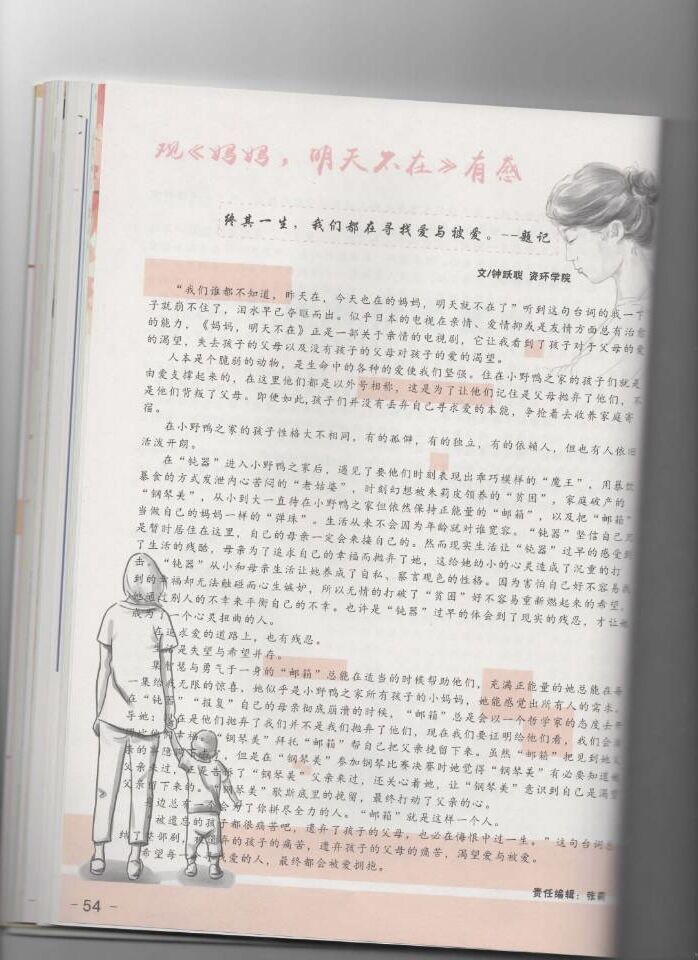 观《妈妈，明天不在》有感
终其一生，我们都在寻找爱与被爱。--题记
文/钟跃聪 资环学院
“我们谁都不知道，昨天在，今天也在的妈妈，明天就不在了”听到这句台词的我一下
子就崩不住了，泪水早已夺眶而出。似乎日本的电视在亲情、爱情抑或是友情方面总有治愈
的能力，《妈妈，明天不在》正是一部关于亲情的电视剧，它让我看到了孩子对于父母的爱
的渴望，失去孩子的父母以及没有孩子的父母对孩子的爱的渴望。
人本是个脆弱的动物，是生命中的各种的爱使我们坚强。住在小野鸭之家的孩子们就是
由爱支撑起来的，在这里他们都是以外号相称，这是为了让他们记住是父母抛弃了他们，不
是他们背叛了父母。即便如此,孩子们并没有丢弃自己寻求爱的本能，争抢着去收养家庭寄
宿。
在小野鸭之家的孩子性格大不相同，有的孤僻，有的独立，有的依赖人，但也有人依旧
活泼开朗。
在“钝器”进入小野鸭之家后，遇见了要他们时刻表现出乖巧模样的“魔王”，用暴饮
暴食的方式发泄内心苦闷的“老姑婆”，时刻幻想被朱莉皮领养的“贫困”，家庭破产的
“钢琴美”，从小到大一直待在小野鸭之家但依然保持正能量的“邮箱”，以及把“邮箱”
当做自己的妈妈一样的“弹珠”。生活从来不会因为年龄就对谁宽容。“钝器”坚信自己只
是暂时居住在这里，自己的母亲一定会来接自己的。然而现实生活让“钝器”过早的感受到
了生活的残酷，母亲为了追求自己的幸福而抛弃了她，这给她幼小的心灵造成了沉重的打
击。“钝器”从小和母亲生活让她养成了自私、察言观色的性格。因为害怕自己好不容易
到的幸福却无法触碰而心生嫉妒，所以无情的打破了“贫困”好不容易重新燃起来的希望。
她通过别人的不幸来平衡自己的不幸。也许是“钝器”过早的体会到了现实的残忍，才让她
成为了一个心灵扭曲的人。
在追求爱的道路上，也有残忍。
是失望与希望并存。
集智慧与勇气于一身的“邮箱”总能在适当的时候帮助他们，充满正能量的她总能在每
一集给我无限的惊喜，她似乎是小野鸭之家所有孩子的小妈妈，她能感觉出所有人的需求。
在“钝器”“报复”自己的母亲彻底崩溃的时候，“邮箱”总是会以一个哲学家的态度去开
导她：现在是他们抛弃了我们并不是我们抛弃了他们，现在我们要证明给他们看，我们会
幸福。“钢琴美”拜托“邮箱”帮自己把父亲挽留下来。虽然“邮箱”把见到她父
亲的事隐瞒下来，但是在“钢琴美”参加钢琴比赛决赛时她觉得“钢琴美”有必要知道
父亲来过，还是告诉了“钢琴美”父亲来过，还关心着她，让“钢琴美”意识到自己是渴望
父亲留下来的。“钢琴美”歇斯底里的挽留，最终打动了父亲的心。
身边总有一个会为了你拼尽全力的人。“邮箱”就是这样一个人。
被遗忘的孩子都很痛苦吧，遗弃了孩子的父母，也必在悔恨中过一生。”这句台词总
结了整部剧，被遗弃的孩子的痛苦，遗弃孩子的父母的痛苦，渴望爱与被爱。
希望每一个寻找爱的人，最终都会被爱拥抱。
责任编辑：张莉
- 54 -